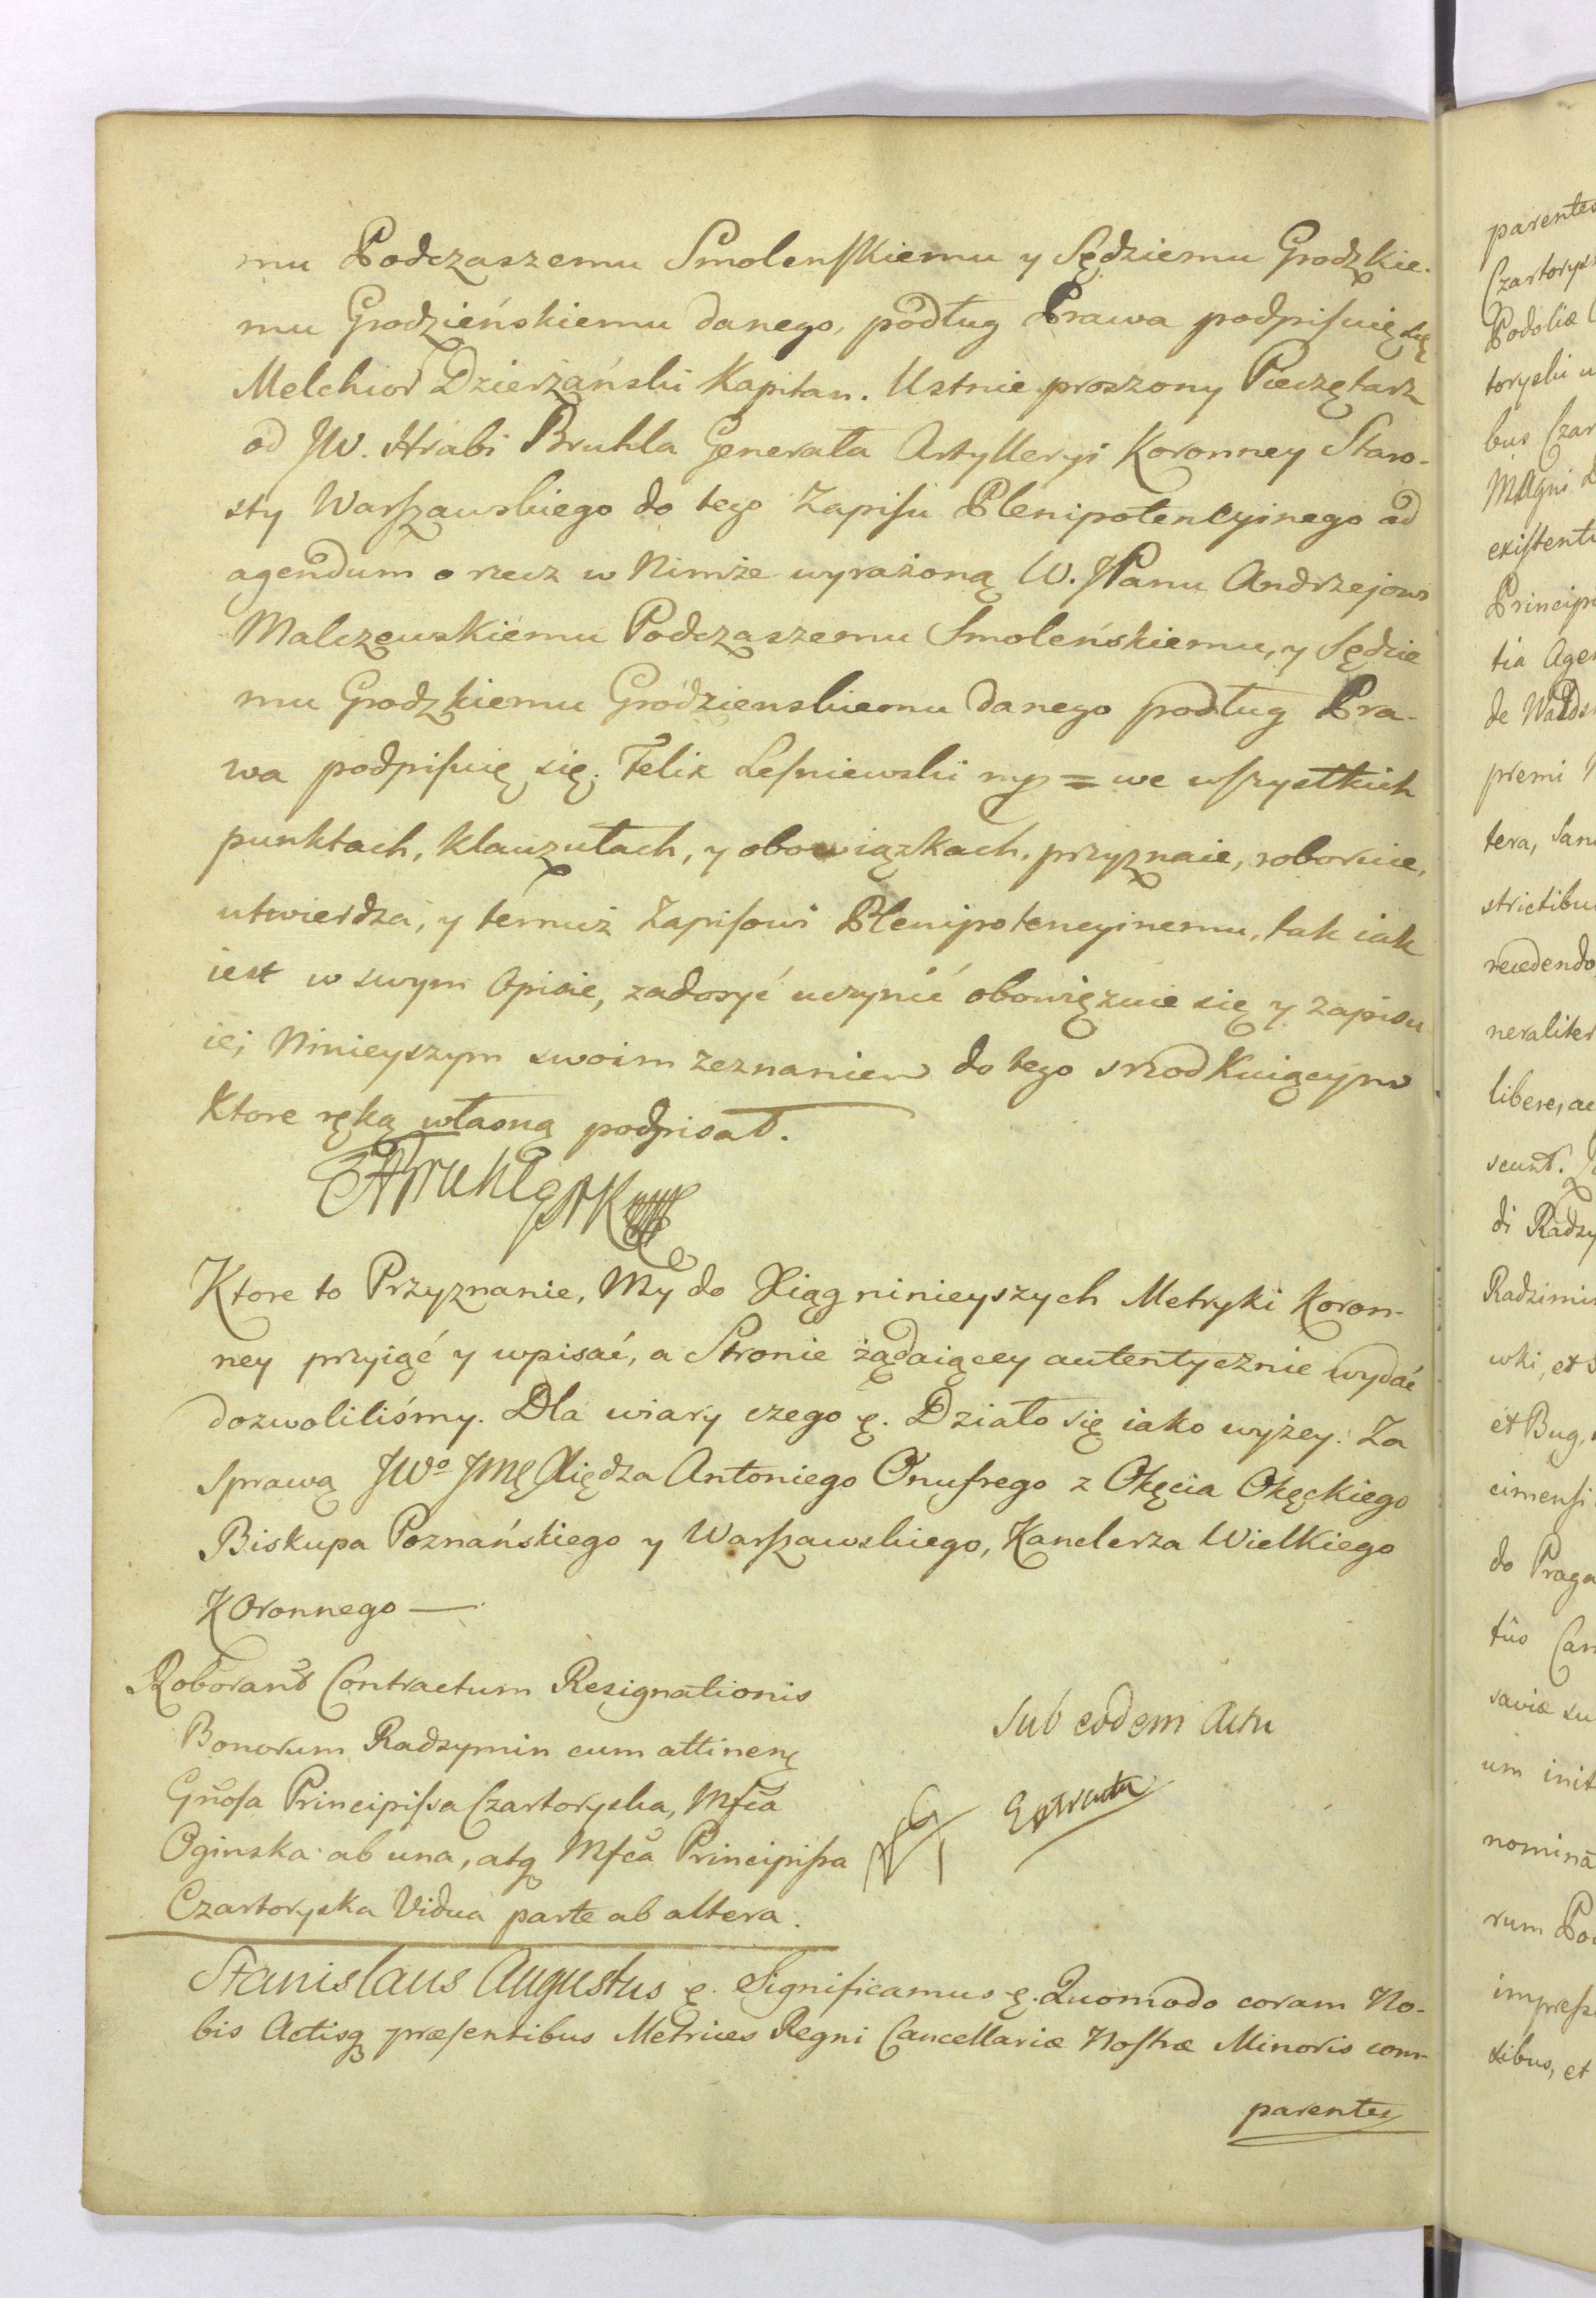 mu Podczaszemu Smolenskiemu y Sędziemu Grodzkie-
mu Grodzieńskiemu danego, podług Prawa podpisuię się
Melchior Dzierżański Kapitan. Ustnie proszony Pieczętarz
od JW. Hrabi Bruhla Generała Artylleryi Koronney Staro-
sty Warszawskiego do tego Zapisu Plenipotencyinego ad
agendum o rzecz w Nimże wyrażoną W. JPanu Andrzejowi
Malczewskiemu Podczaszemu Smoleńskiemu, y Sędzie
mu Grodzkiemu Grodzienskiemu danego podług Pra-
wa podpisuię się. Felix Lesniewski mp = we wszystkich
punktach, klauzułach, y obowiązkach, przyznaie, roboruie,
utwierdza, y temuż Zapisowi Plenipotencyinemu, tak iak
iest w swym Opisie, zadosyć uczynić obowięzuie się y zapisu
iei Ninieyszym swoim zeznaniem do tego srzodkuiącym
Ktore ręką własną podpisał.
Ktore to Przyznanie, My do Xiąg ninieyszych Metryki Koron-
ney przyiąć y wpisać, a Stronie żądaiącey autentycznie wydać
dozwoliliśmy. Dla wiary czego &. Działo się iako wyżey. Za
Sprawą JWº JMę Xiędza Antoniego Onufrego z Okęcia Okęckiego
Biskupa Poznańskiego y Warszawskiego, Kanclerza Wielkiego
Koronnego —
Roborant Contractum Resignationis
Bonorum Radzymin cum attinen
Gnosa Principissa Czartoryska, Mfca
Oginska ab una, atq Mfca Principissa
Czartoryska Vidua parte ab altera.
Sub eodem Actu
Extractu
Stanislaus Augustus &. Significamus &. Quomodo coram No-
bis Actisq præsentibus Metrices Regni Cancellariæ Nostræ Minoris com-
parentes
parentes
Czartorys
Podoliæ
toryski
bus Czar
Magni
existenti
Principi
tia Agen
de
premi
tera,
strictibus
recedendo
neraliter
libere, ac
scunt.
di Radzy
Radzimin
wki, et
et Bug,
cimensi
do Praga
tûs
saviæ su
um init
nomina
rum
impress
xibus, et